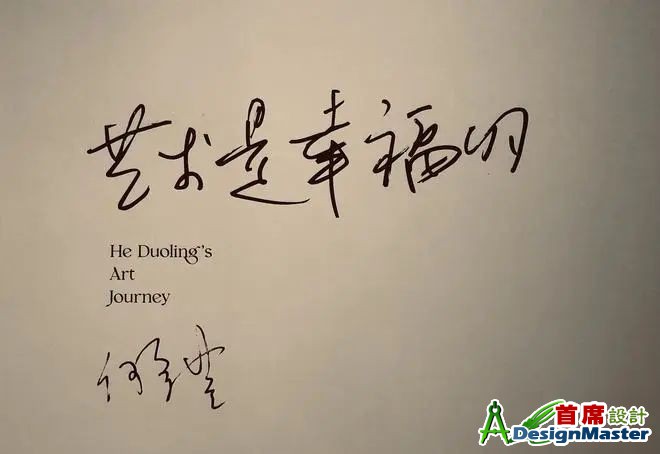 艺术是幸福的
He Duoling's
Art
Journey
何多苓
首席設計
ADesignMaster